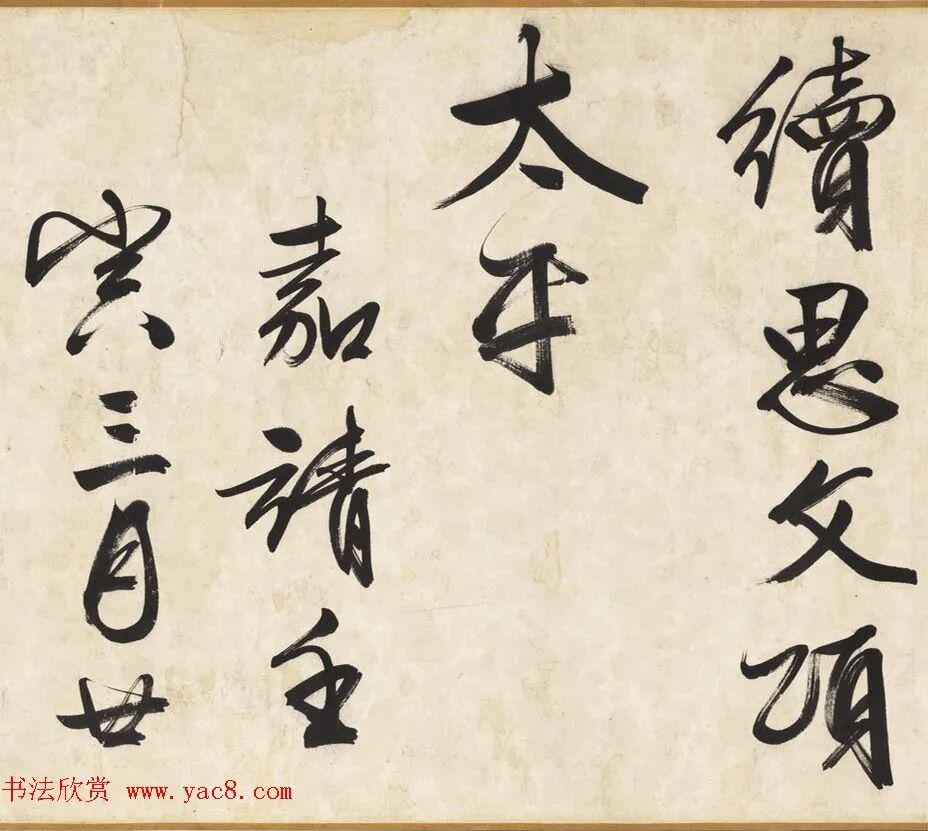 續思文頌
太平
嘉靖壬
寅三月廿
书法欣赏 www.yac8.com